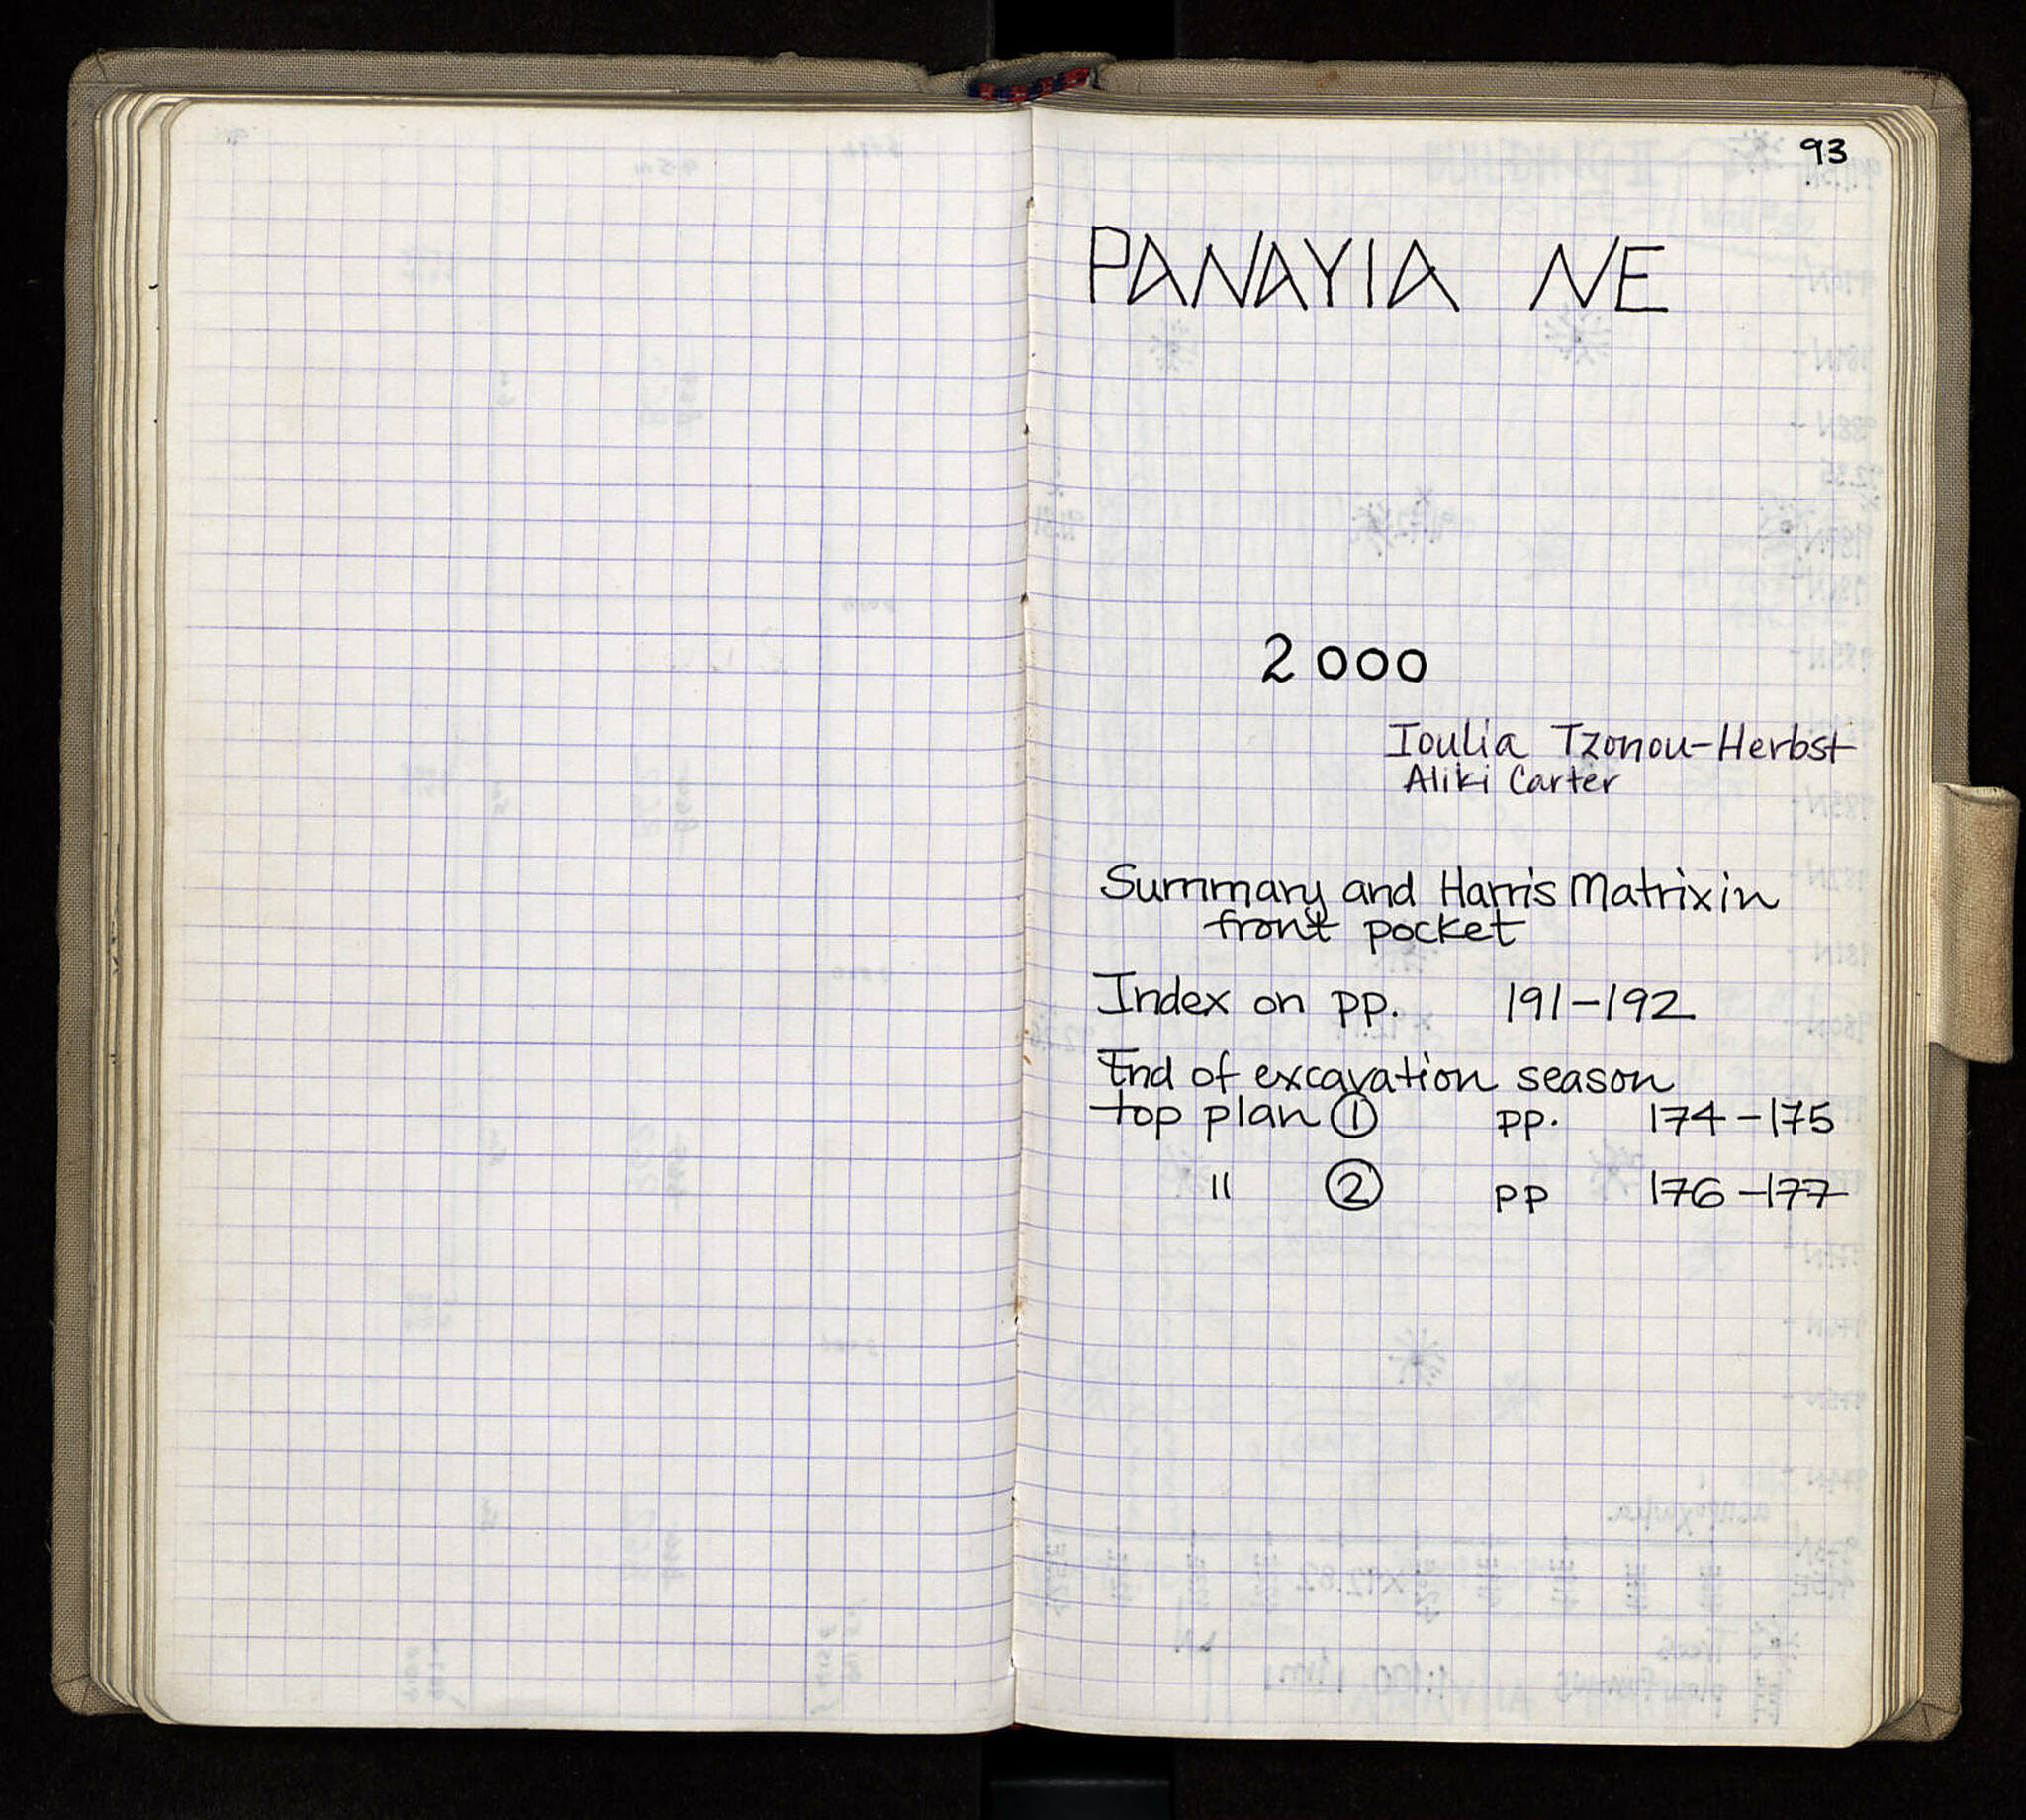 93
PANAYIA NE
2000
Ioulia Tzonou-Herbst
Aliki Carter
Summary and Harris Matrix in
front pocket
Index on pp. 191-192
End of excavation season
top plan ① pp. 174-175
" ② pp 176-177